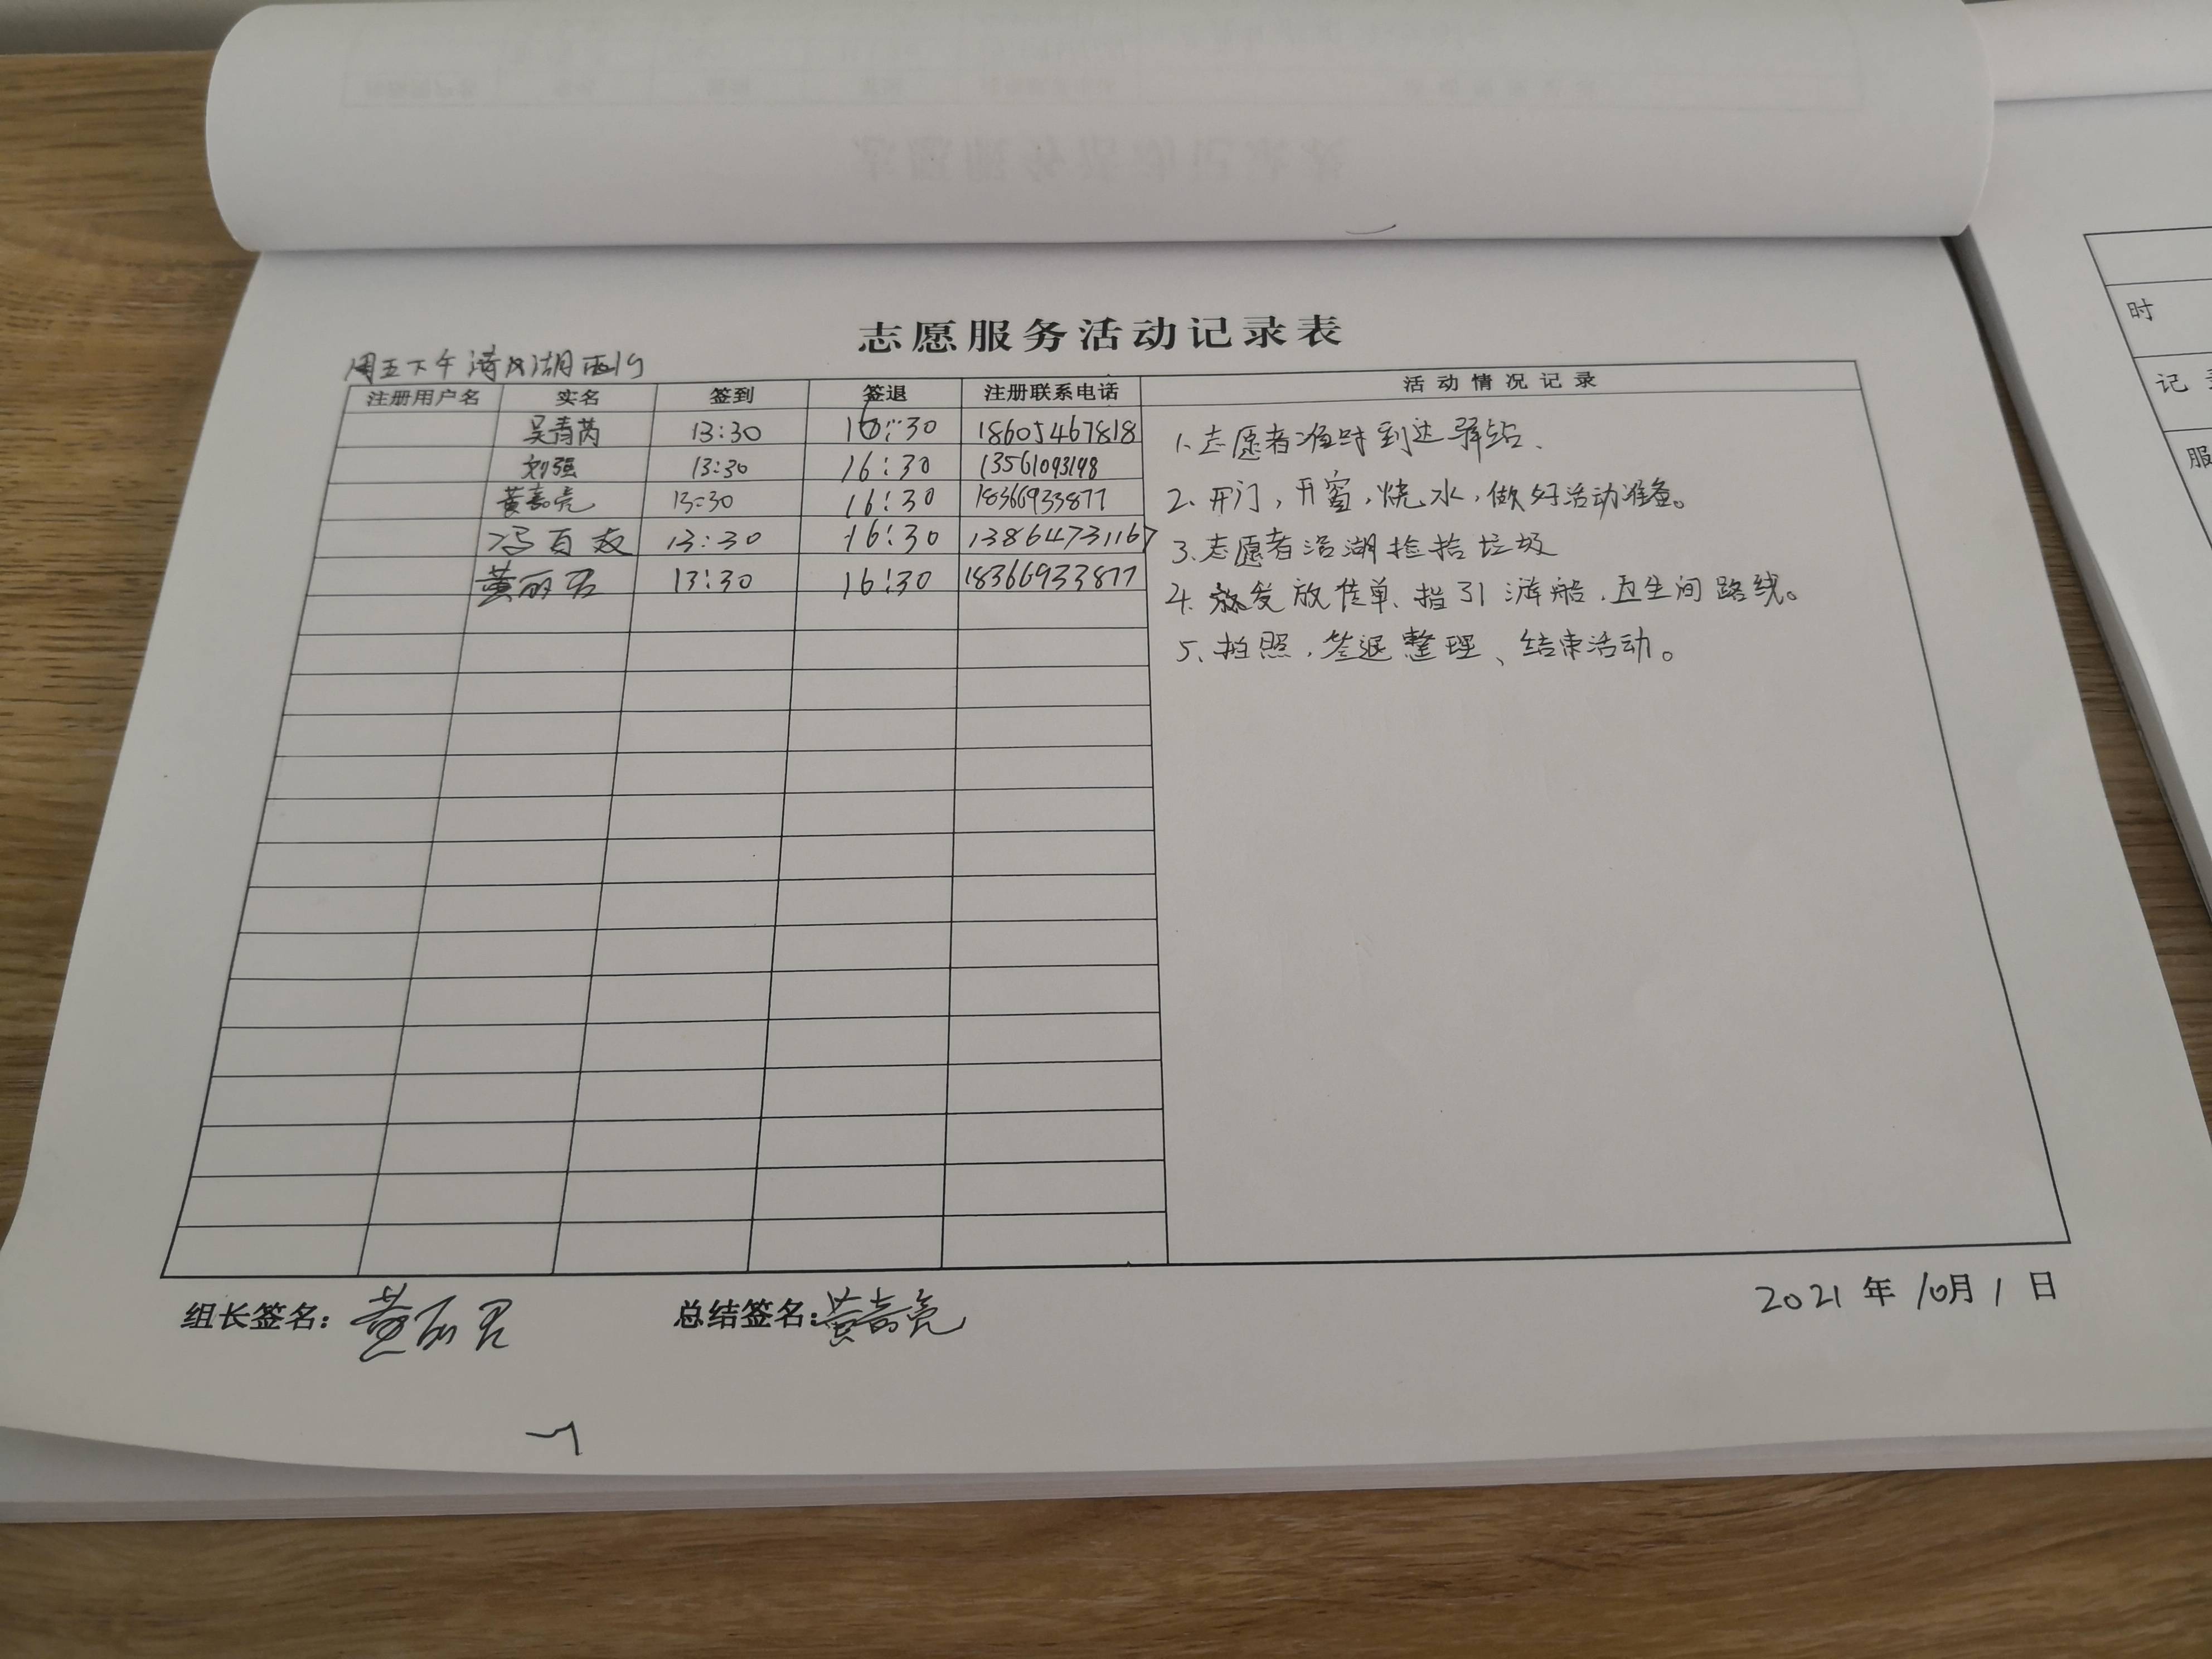 志愿服务活动记录表
周五下午清风湖西岗
注册用户名 实名 签到 签退 注册联系电话 活动情况记录
吴青芮 13:30 16:30 18605467818
刘强 13:30 16:30 13561093198
黄嘉亮 13:30 16:30 18366933877
冯百友 13:30 16:30 13864731167
黄丽君 13:30 16:30 18366933877
1.志愿者准时到达驿站、
2.开门,开窗,烧水,做好活动准备。
3.志愿者沿湖捡拾垃圾
4.发放传单、指引游船、卫生间路线。
5、拍照,签退整理、结束活动。
组长签名:黄丽君 总结签名:黄嘉亮 2021年10月1日
时
记
服